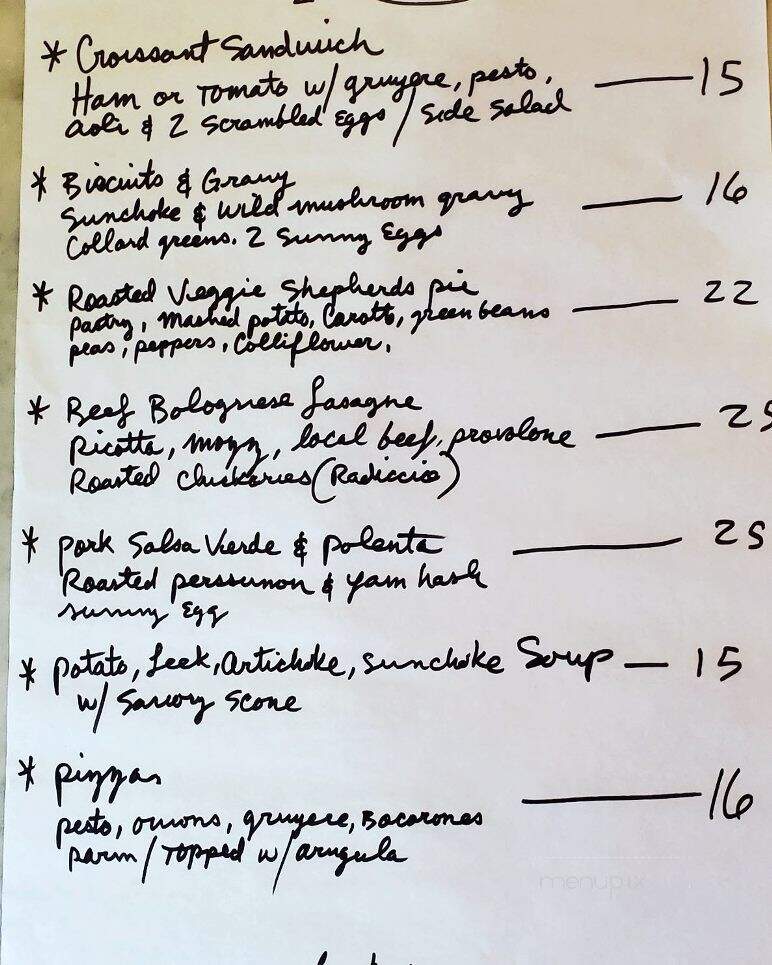 * Croissant Sandwich
Ham or Tomato w/ gruyere, pesto, — 15
aoli & 2 Scrambled Eggs / Side Salad
* Biscuits & Gravy
Sunchoke & Wild mushroom gravy — 16
Collard greens. 2 Sunny Eggs
* Roasted Veggie Shepherds pie
pastry, mashed potato, Carotts, green beans — 22
peas, peppers, Colliflower,
* Beef Bolognese Lasagne
Ricotta, mozz, local beef, provolone — 25
Roasted (Radiccio)
* Pork Salsa Vierde & Polenta — 25
Roasted perssimon & yam hash
sunny Egg
* potato, Leek, Artichoke, Sunchoke Soup — 15
w/ Savory Scone
* pizzas — 16
pesto, onions, gruyere,
parm / Topped w/ arugula
menupix